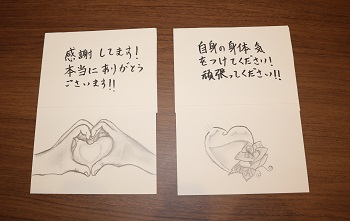 感謝してます!
本当にありがとう
ございます!!
自身の身体気
をつけてください!
頑張ってください!!